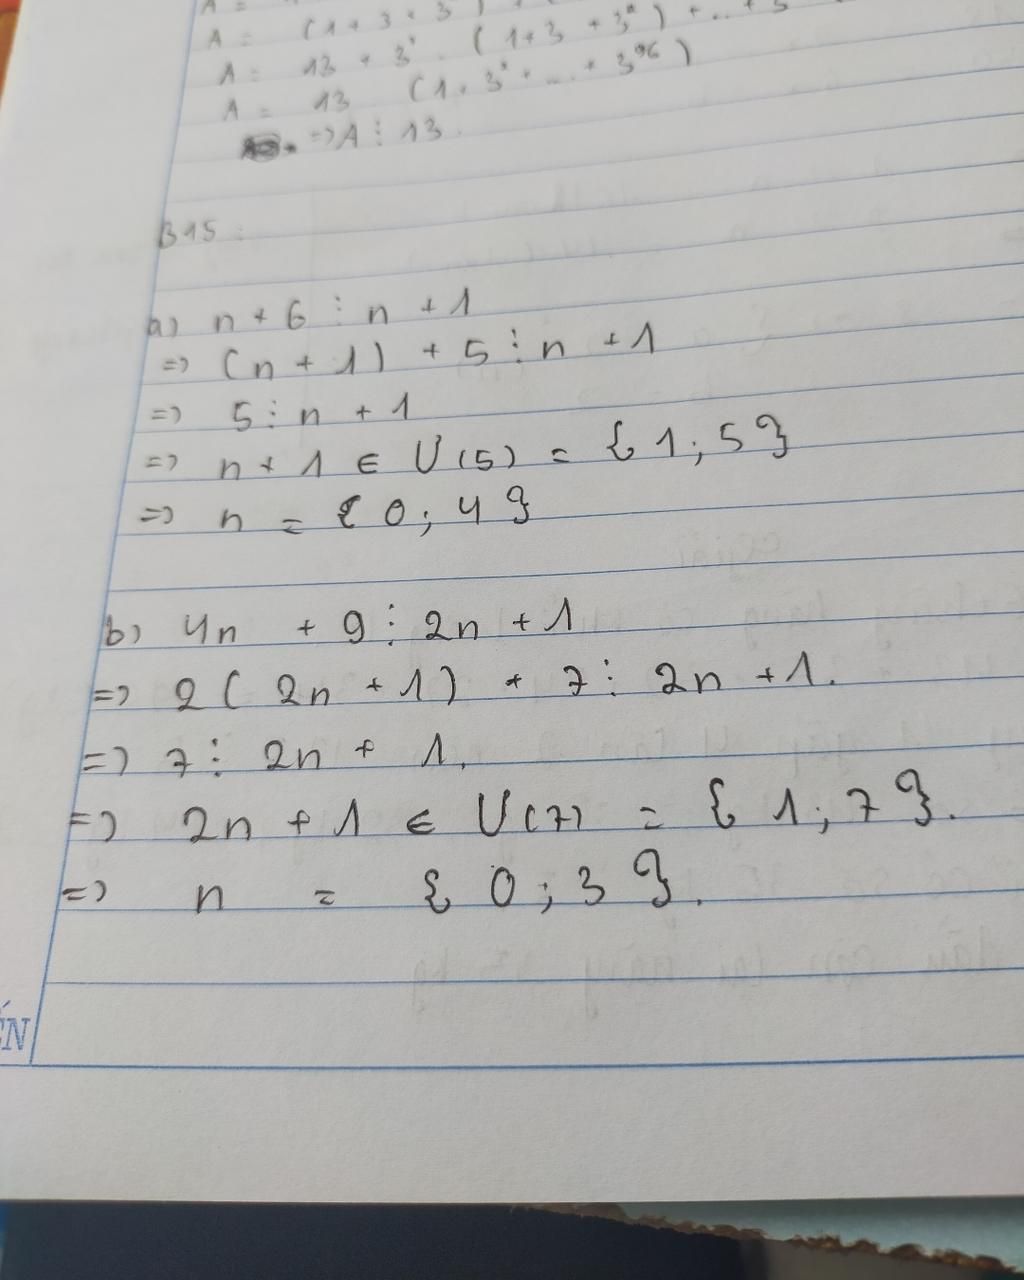 A =
A = (1 + 3 + 3
A = 13 + 3³ . (1 + 3 + 3²) + ... + 3
A = 13 (1 + 3³ + ... + 3⁹⁶)
=> A ⋮ 13.
B15:
a) n + 6 ⋮ n + 1
=> (n + 1) + 5 ⋮ n + 1
=> 5 ⋮ n + 1
=> n + 1 ∈ Ư(5) = {1; 5}
=> n = {0; 4}
b) 4n + 9 ⋮ 2n + 1
=> 2(2n + 1) + 7 ⋮ 2n + 1.
=> 7 ⋮ 2n + 1.
=> 2n + 1 ∈ Ư(7) = {1; 7}.
=> n = {0; 3}.
ẾN